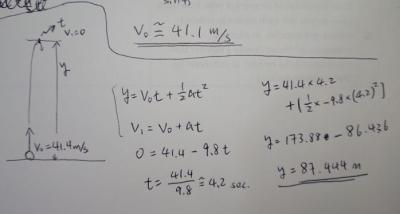 V₀ ≅ 41.1 m/s
t
V₁=0
y
V₀=41.4m/s
y=V₀t+½at²
V₁=V₀+at
0=41.4-9.8t
t=41.4/9.8≅4.2 sec.
y=41.4×4.2
+[½×-9.8×(4.2)²]
y=173.88-86.436
y=87.444 m